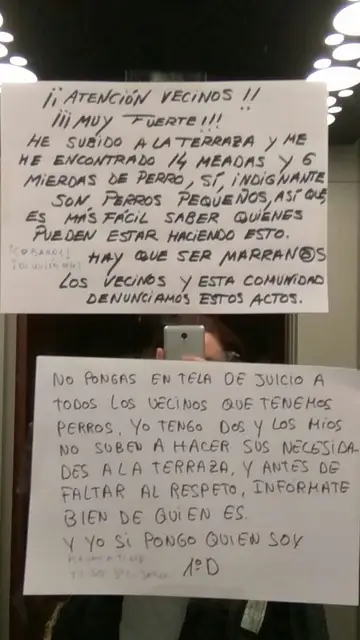 ¡¡ ATENCIÓN VECINOS !!
¡¡¡ MUY FUERTE!!!
HE SUBIDO A LA TERRAZA Y ME
HE ENCONTRADO 14 MEADAS Y 6
MIERDAS DE PERRO, SÍ, INDIGNANTE
SON PERROS PEQUEÑOS, ASÍ QUE
ES MÁS FÁCIL SABER QUIENES
PUEDEN ESTAR HACIENDO ESTO.
HAY QUE SER MARRAN@S
LOS VECINOS Y ESTA COMUNIDAD
DENUNCIAMOS ESTOS ACTOS.
NO PONGAS EN TELA DE JUICIO A
TODOS LOS VECINOS QUE TENEMOS
PERROS, YO TENGO DOS Y LOS MIOS
NO SUBEN A HACER SUS NECESIDA-
DES A LA TERRAZA, Y ANTES DE
FALTAR AL RESPETO, INFORMATE
BIEN DE QUIEN ES.
Y YO SI PONGO QUIEN SOY
1º D